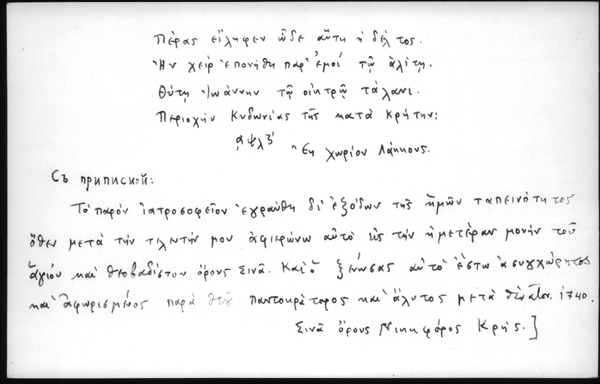 Πέρας εἴληφεν ὧδε αὕτη ἡ δέλτος.
Ἣν χεὶρ ἐπονήθη παρ' ἐμοί τῷ ἀλίτῃ.
Θύτῃ Ἰωάννῃν τῷ οἰκτρῷ τάλανι.
Περιοχὴν Κυδωνίας τῆς κατὰ Κρήτην:
͵αψλξʹ Ἐκ χωρίον Λάκκους.
Съ припиской:
Τὸ παρὸν ἰατροσοφεῖον ἐγράφθη δι' ἐξόδων τῆς ἡμῶν ταπεινότητος
ὅθεν μετὰ τὴν τελευτήν μου ἀφιερώνω αὐτὸ εἰς τὴν ἡμετέραν μονὴν τοῦ
ἁγίου καὶ θεοβαδίστου ὄρους Σινᾶ. Καὶ ὁ ξενώσας αὐτὸ ἔστω ἀσυγχώρητος
καὶ ἀφωρισμένος παρὰ θεοῦ παντοκράτορος καὶ ἄλυτος μετὰ θάνατον. 1740.
Σινᾶ ὄρους Νικηφόρος Κρής.]